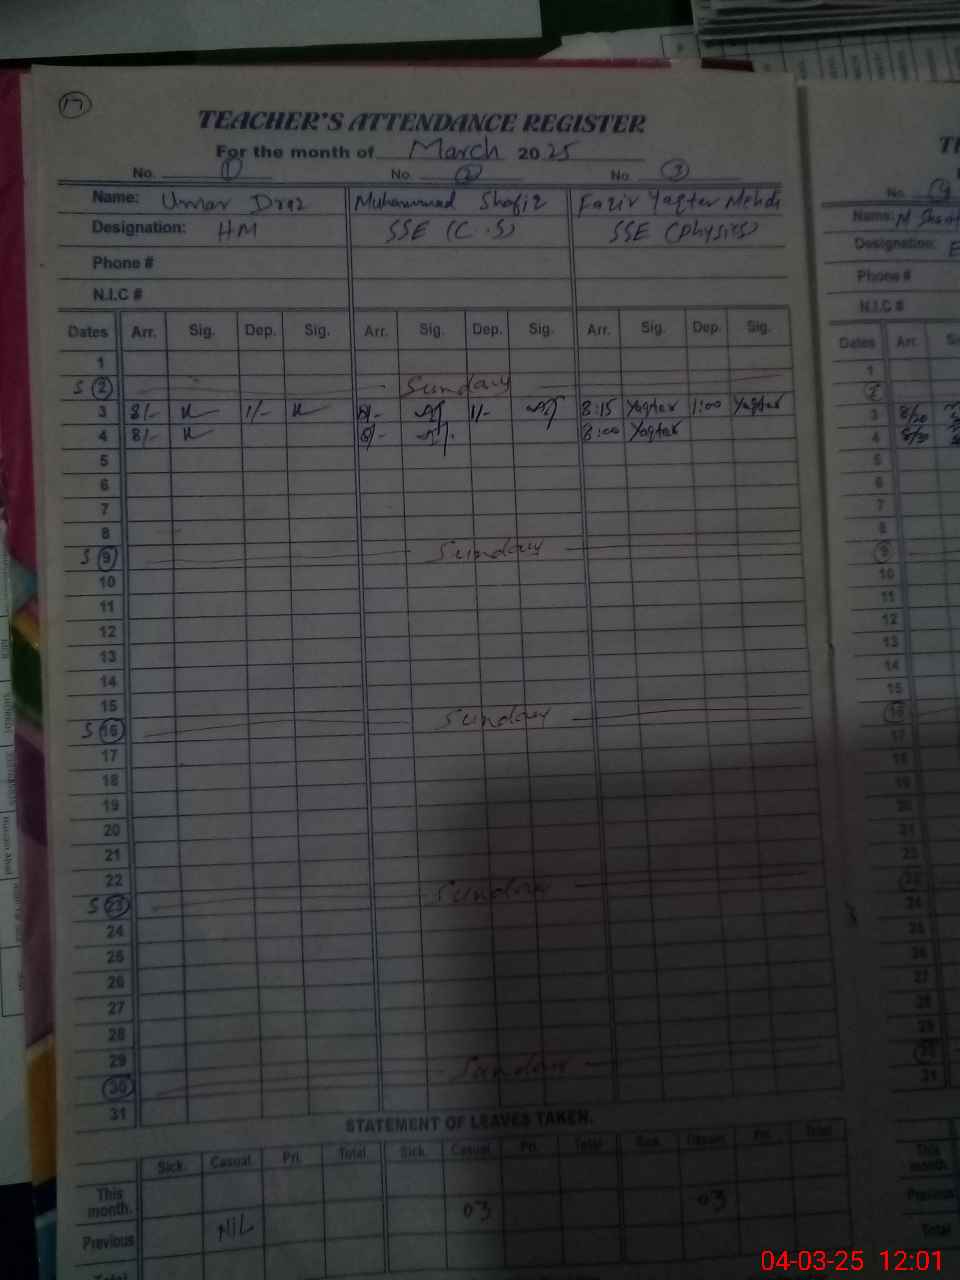 17
TEACHER'S ATTENDANCE REGISTER
For the month of March 2025
No. 1 No. 2 No. 3
Name: Umar Draz Muhammad Shafiz Fazir Yaqter Mehdi
Designation: HM SSE (C.S) SSE (Physics)
Phone #
N.I.C #
Dates Arr. Sig. Dep. Sig. Arr. Sig. Dep. Sig. Arr. Sig. Dep. Sig.
1
S 2 Sunday
3 8/- 1/- 8/- 1/- 8:15 Yaqter 1:00 Yaqter
4 8/- 8/- 8:00 Yaqter
5
6
7
8
S 9 Sunday
10
11
12
13
14
15
S 16 Sunday
17
18
19
20
21
22
S 23 Sunday
24
25
26
27
28
29
30 Sunday
31
STATEMENT OF LEAVES TAKEN.
Sick. Casual Pri. Total Sick. Casual Pri. Total Casual Pri. Total
This month.
Previous NIL 03 03
Total
No. 4
Name:
Designation:
Phone #
N.I.C #
Dates Arr.
1
2
3 8/30
4 8/30
5
6
7
8
9
10
11
12
13
14
15
16
17
18
19
20
21
22
23
24
25
26
27
28
29
30
31
This month
Previous
Total
04-03-25 12:01